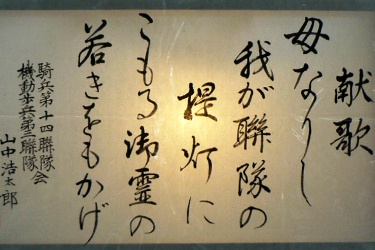 献歌
母なりし
我が聯隊の
提灯に
こもる御霊の
若きをもかげ
騎兵第十四聯隊会
機動歩兵第三聯隊
山中浩太郎